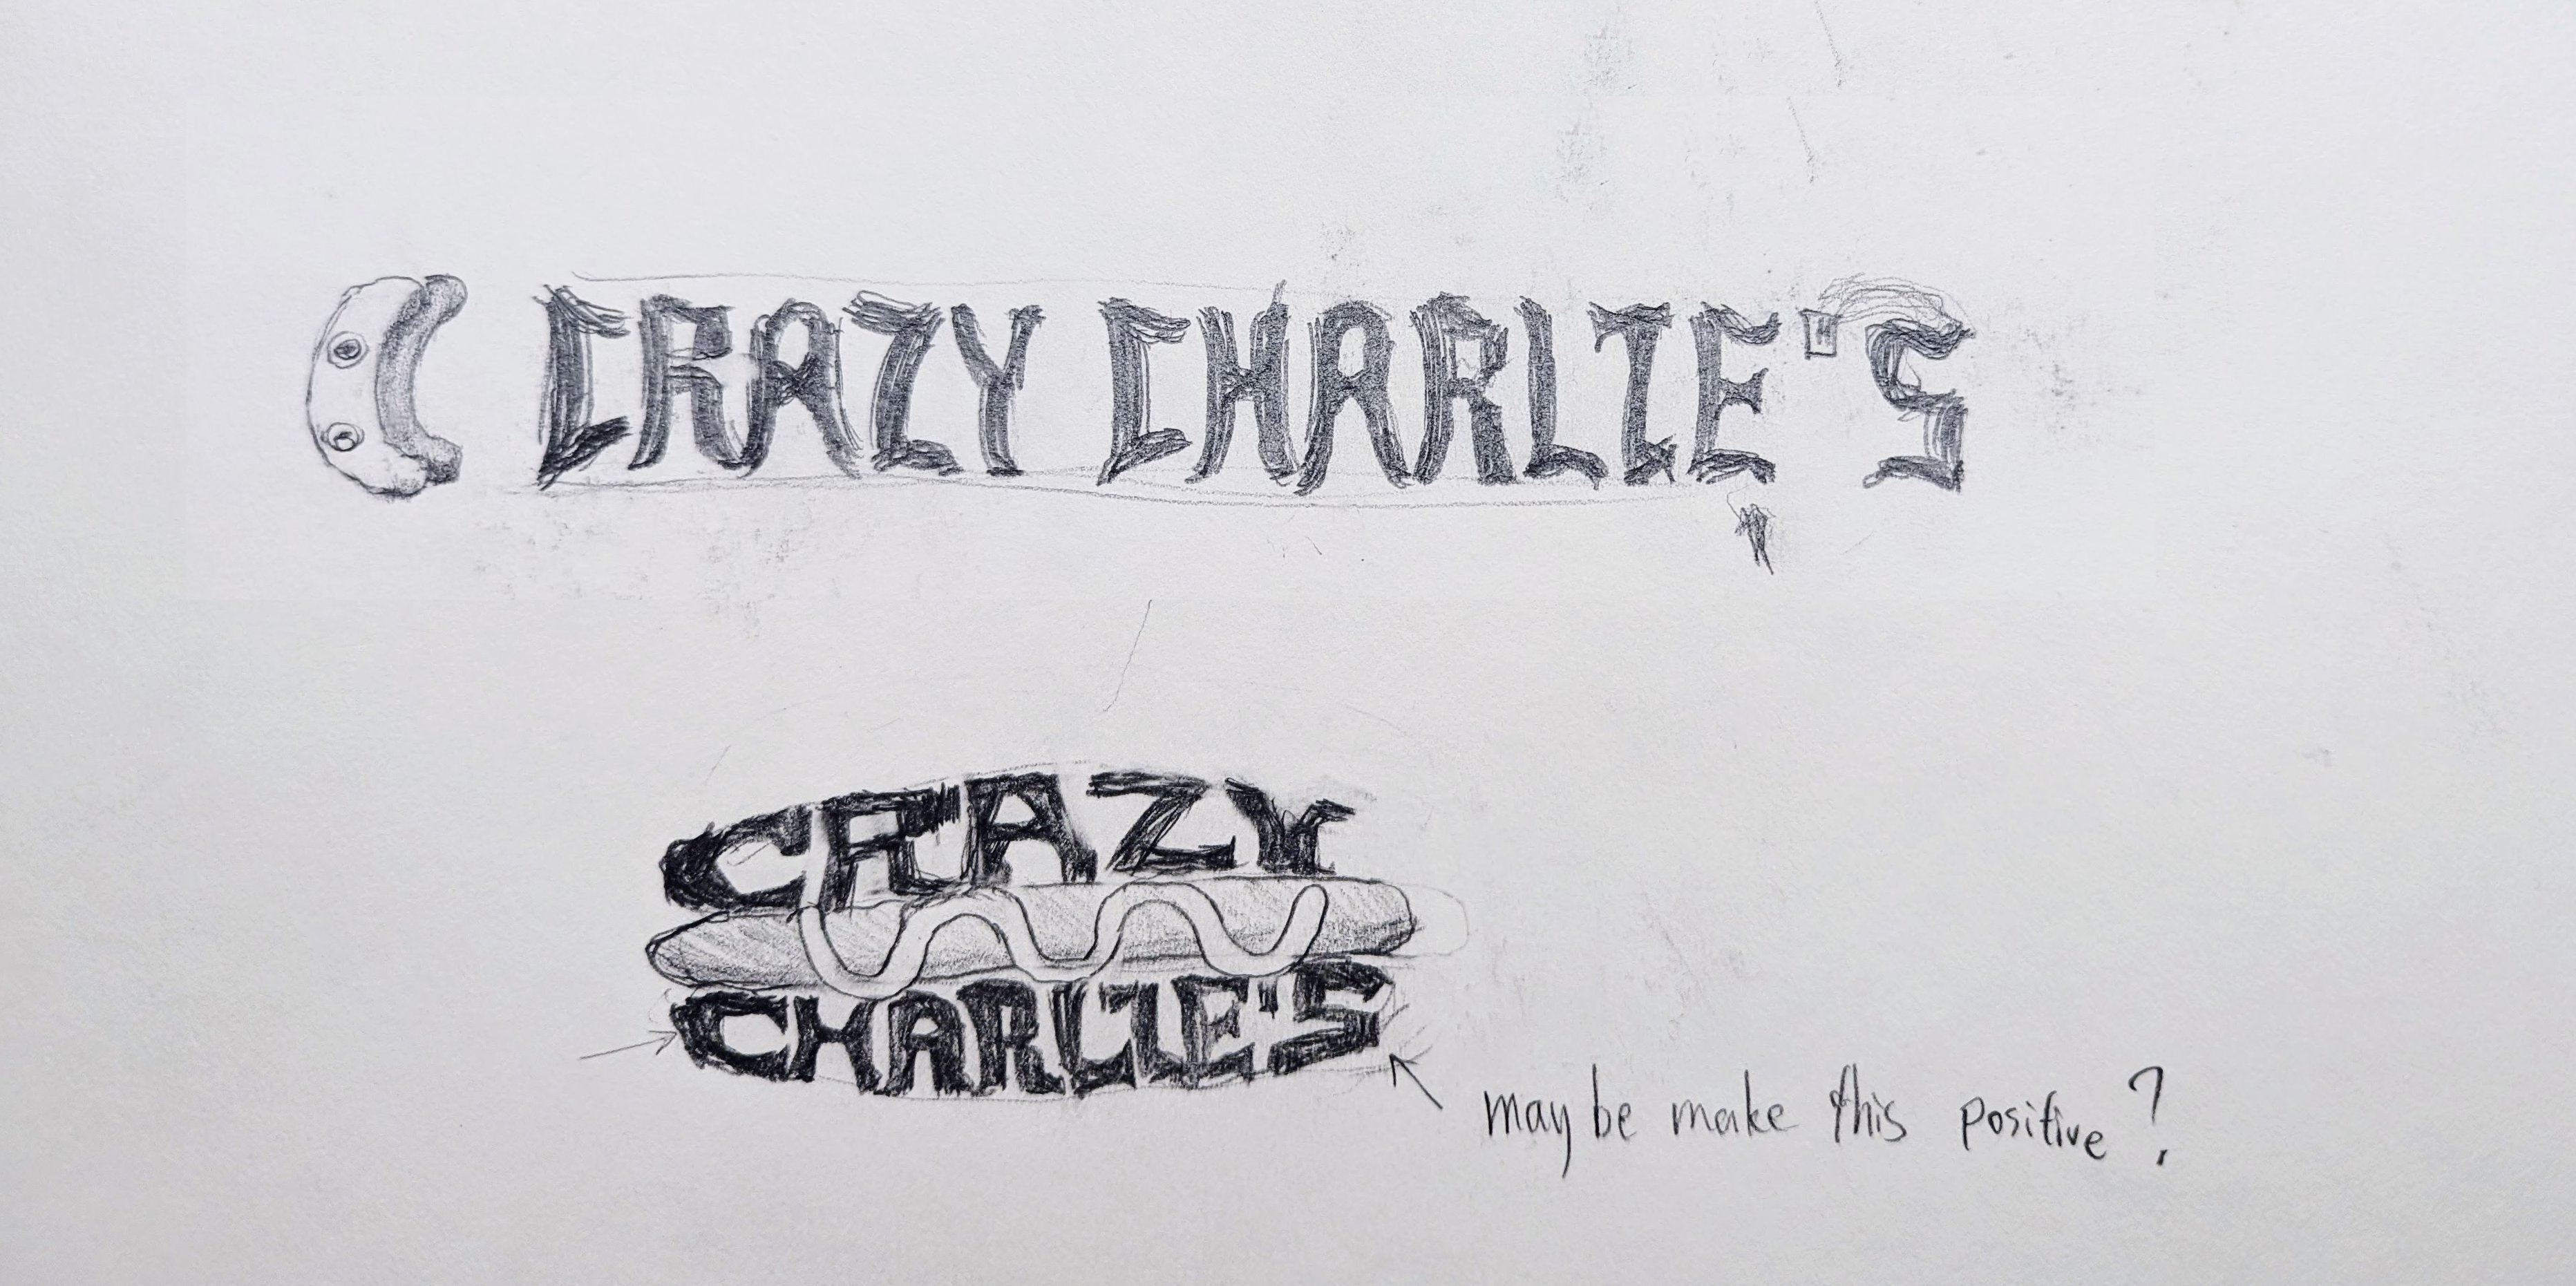 CRAZY CHARLIE'S
CRAZY
CHARLIE'S
maybe make this positive?